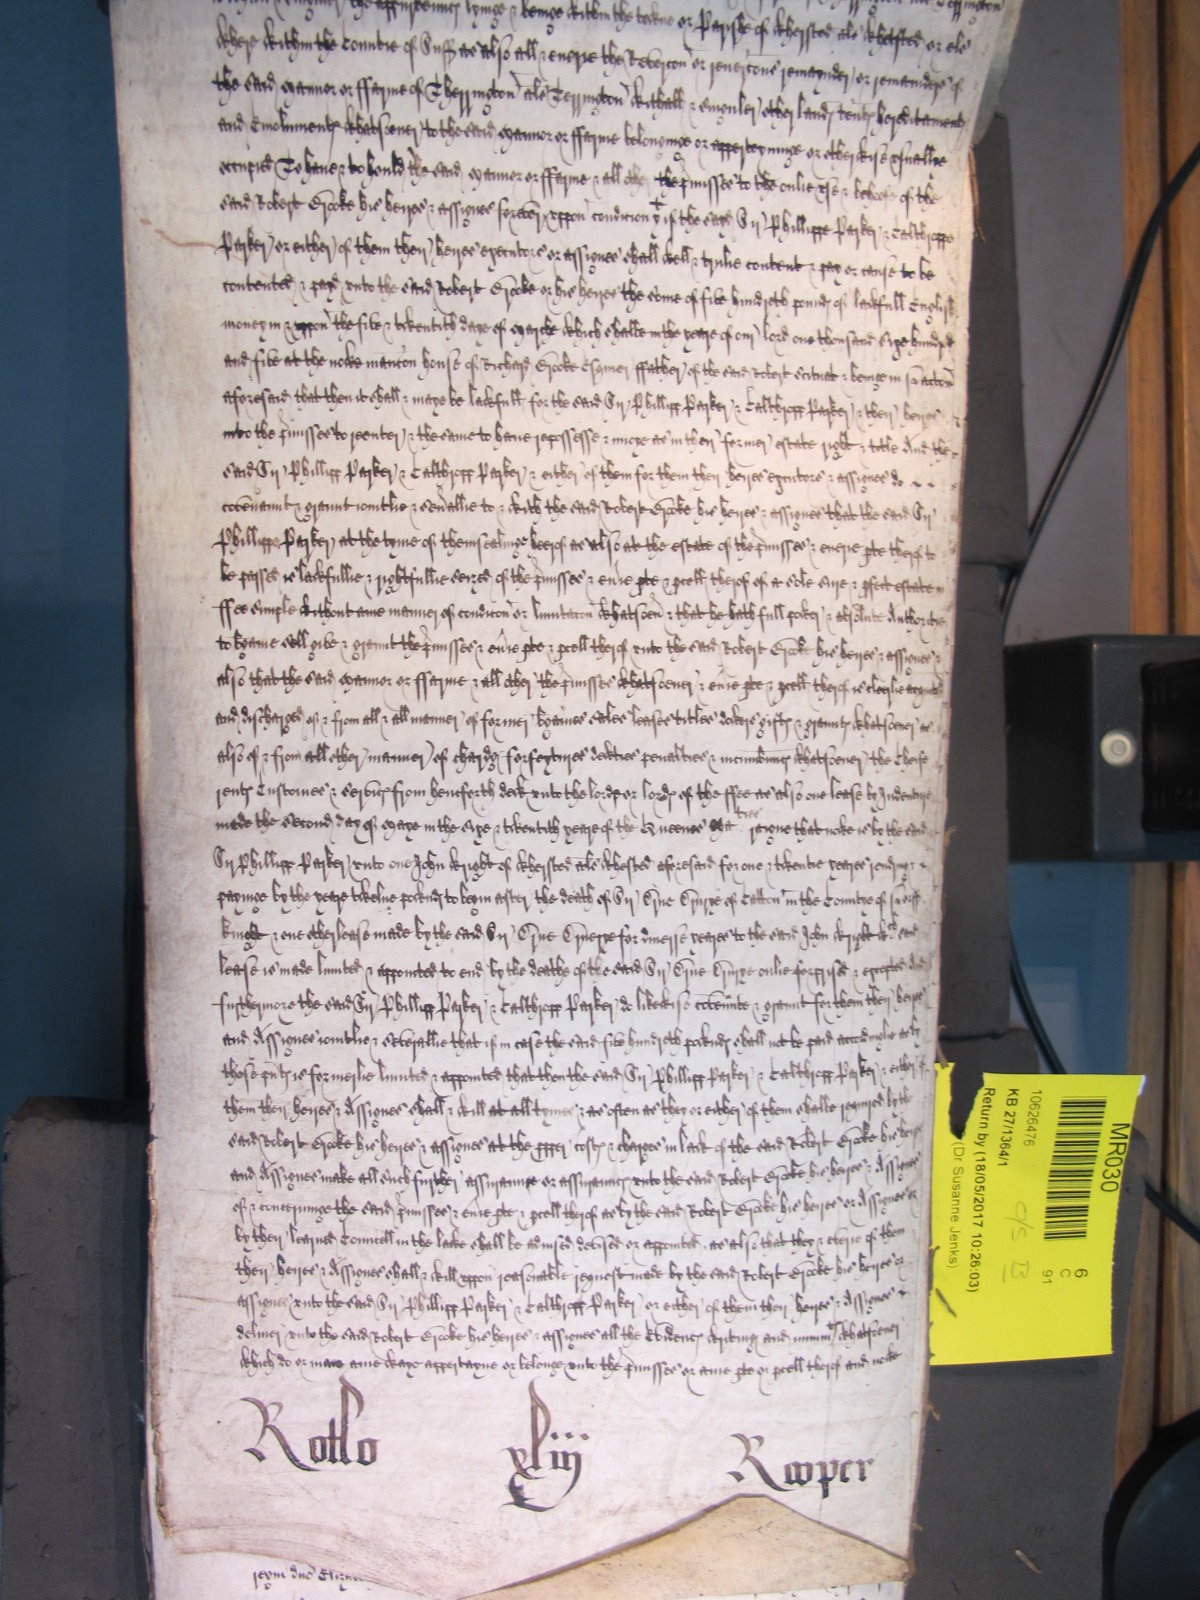 where within the Countie of Suff as also all & everie the Revercon or revercons remaynder or remainders of
the said Mannor or fferme of Therrington als Terrington withall & singuler other landes tentes hereditaments
and Emoluments whatsoever to the said Mannor or fferme belonginge or apperteyninge or otherwise usuallye
occupied To have & to hould the said Mannor or fferme & all other the pmisses to the onlie use & behoofe of the
said Robert Brooke his heires & assignes forever uppon condition yt if the said Sir Phillippe Parker & Calthroppe
Parker or either of them their heires executors or assignes shall well & trulie content & pay or cause to be
contented & payd unto the said Robert Brooke or his heires the some of five hundreth pounds of lawfull English
money in & uppon the five & twentith daye of Marche which shalbe in the yeare of our lord one thousand sixe hundred
and five at the nowe mancon house of Richard Brooke Esquier ffather of the said Robert scituat & beinge in
aforesaid that then it shall & maye be lawfull for the said Sir Phillipp Parker & Calthropp Parker & their heires
into the pmisses to reenter & the same to have repossesse & enioye as in their former estate right & title And the
said Sir Phillipp Parker & Calthropp Parker & either of them for them their heires executors & assignes do
covenaunt & graunt iointlie & severallie to & with the said Robert Brooke his heires & assignes that the said Sir
Phillippe Parker at the tyme of thensealinge hereof as also at the estate of the pmisses & everie pte therof to
be passed is lawfullie & rightfullie seized of the pmisses & everie pte & pcell therof of a sole sure & pfect estate in
ffee simple without anie manner of condicon or limitacon whatsoever & that he hath full power & absolute Authoritie
to bargaine sell give & graunt the pmisses & everie pte & pcell therof unto the said Robert Brooke his heires & assignes &
also that the said Mannor or fferme & all other the pmisses whatsoever & everie pte & pcell therof is clerlie acquited
and discharged of & from all & all manner of former bargaines sales leases titles dowers gifts & graunts whatsoever as
also of & from all other manner of charges forfeytures penalties & incumbrances whatsoever the Cheife
rents Customes & services from henceforth dewe unto the lorde or lordes of the ffee as also one lease by Indenture
made the second day of Maye in the sixe & twentith yeare of the Queenes raigne that nowe is by the said
Sir Phillipp Parker unto one John Wright of aforesaid for one & twentie yeares
payinge by the yeare twelve pounds to begin after the death of Sir in the Countye of
Knight & one other lease made by the said Sir for diverse yeares to the said John Wright wch said
lease is made limited & appointed to end by the deathe of the said Sir onlie & excepted And
furthermore the said Sir Phillipp Parker & Calthropp Parker do likewise covenante & graunt for them their heires
and Assignes iointlie & severallie that if in case the said five hundreth pounds shall not be paid accordinglie as by
those is formerlie limited & appointed that then the said Sir Phillipp Parker & Calthropp Parker & either of
them their heires & Assignes shall & will at all tymes & as often as they or either of them shalbe required by the
said Robert Brooke his heires & assignes at the pper costs & charges in lawe of the said Robert Brooke his heires
and Assignes make all such further assurance or assurances unto the said Robert Brooke his heires & Assignes
of & concerninge the said pmisses & everie pte & pcell therof as by the said Robert Brooke his heires or Assignes or
by their learned Councell in the lawe shall be advised devised or appointed as also that they & everie of them
their heires & Assignes shall & will uppon reasonable request made by the said Robert Brooke his heires or
assignes unto the said Sir Phillipp Parker & Calthropp Parker or either of them their heires & Assignes
deliver unto the said Robert Brooke his heires & assignes all the Evidences writings and whatsoever
which do or maye anie waye appertayne or belonge unto the pmisses or anie pte or pcell therof and nowe
Rotlo xliij Rooper
MR030
10626476
KB 27/1364/1
Return by (18/05/2017 10:26:03)
(Dr Susanne Jenks)
6
C
91
o/s B